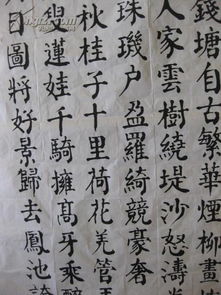 錢塘自古繁華煙柳畫
人家雲樹繞堤沙怒濤
珠璣户盈羅綺競豪奢
秋桂子十里荷花羌管
叟蓮娃千騎擁髙牙乘醉
日圖將好景歸去鳳池誇